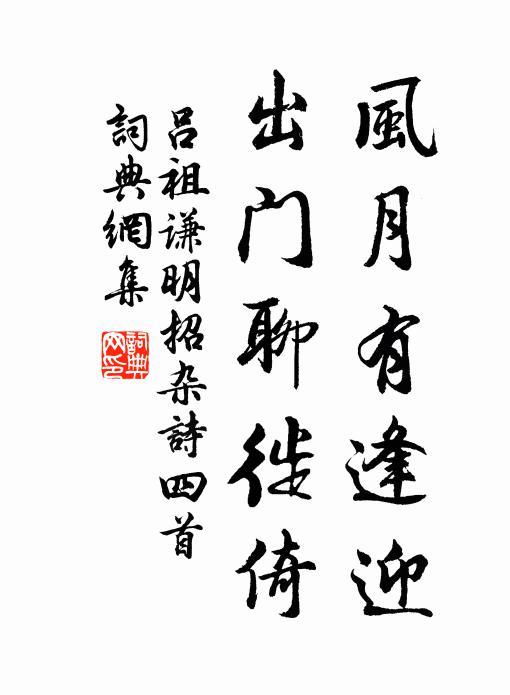 風月有逢迎
出门聊徙倚
呂祖谦明招杂詩四首
詞典網集